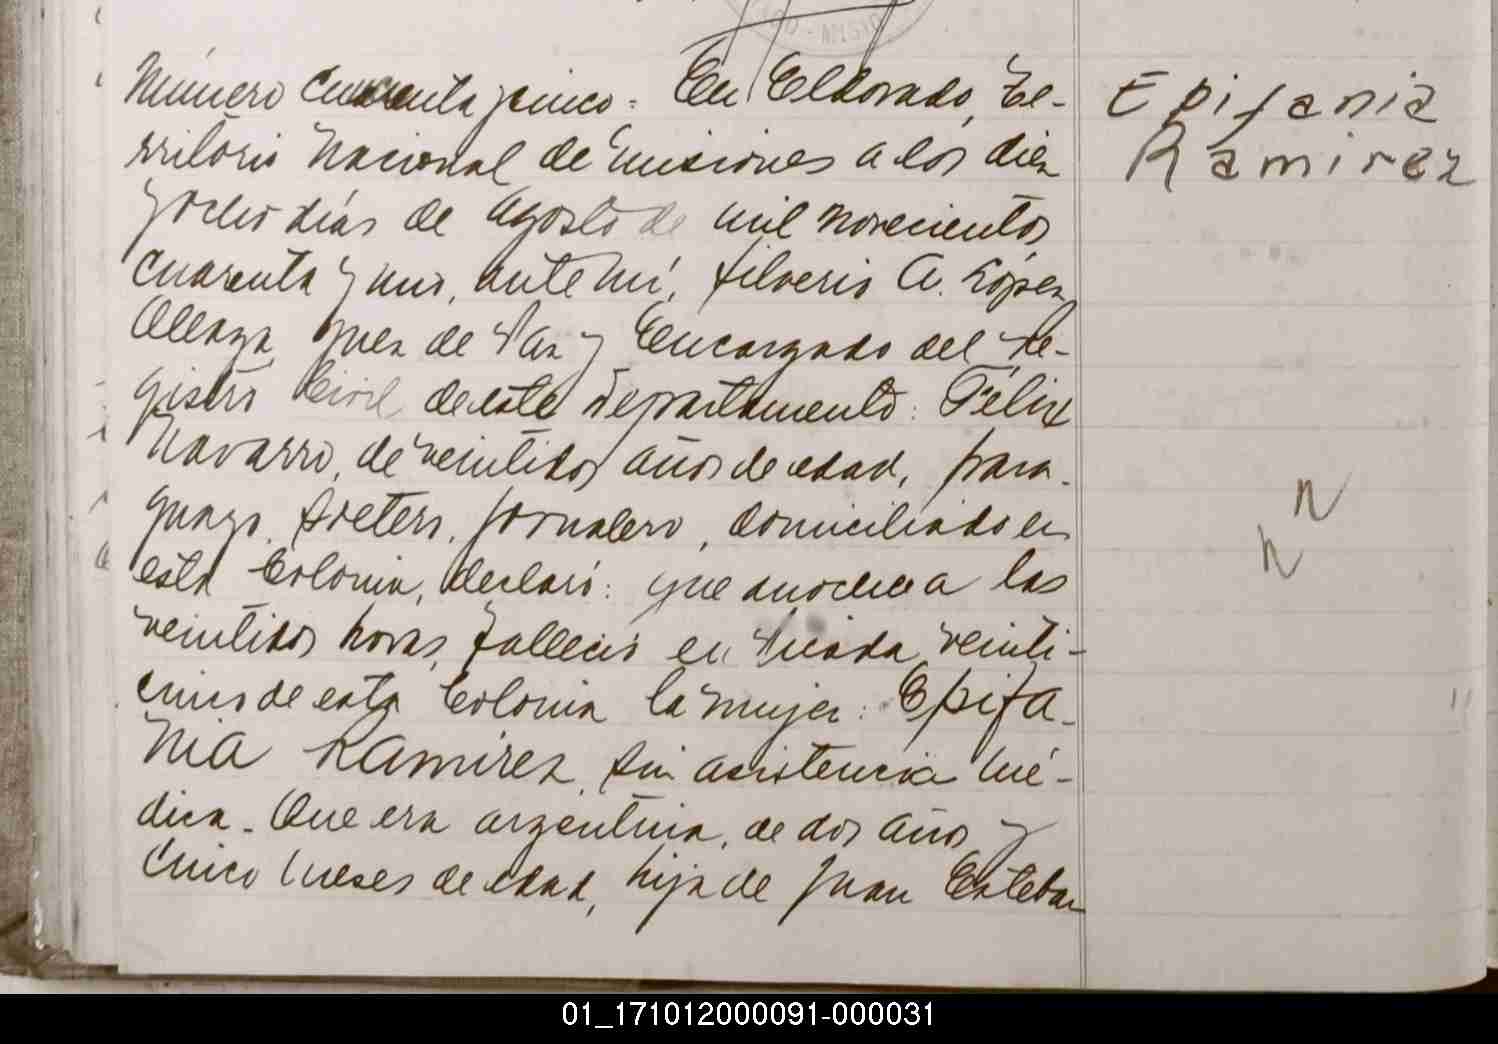 Número cuarenta y cinco: En Eldorado, Te-
rritorio Nacional de Misiones a los diez
y ocho días de Agosto de mil novecientos
cuarenta y uno, ante mí, Silverio A. López
Alleaga, Juez de Paz y Encargado del Re-
gistro Civil de este Departamento: Félix
Navarro, de veintidos años de edad, para-
guayo, soltero, jornalero, domiciliado en
esta Colonia, declaró: que anoche a las
veintidos horas, falleció en Picada veinti-
cinco de esta Colonia la mujer: Epifa-
nia Ramirez, sin asistencia mé-
dica. Que era argentina, de dos años y
cinco meses de edad, hija de Juan Esteban
Epifania
Ramirez
01_171012000091-000031